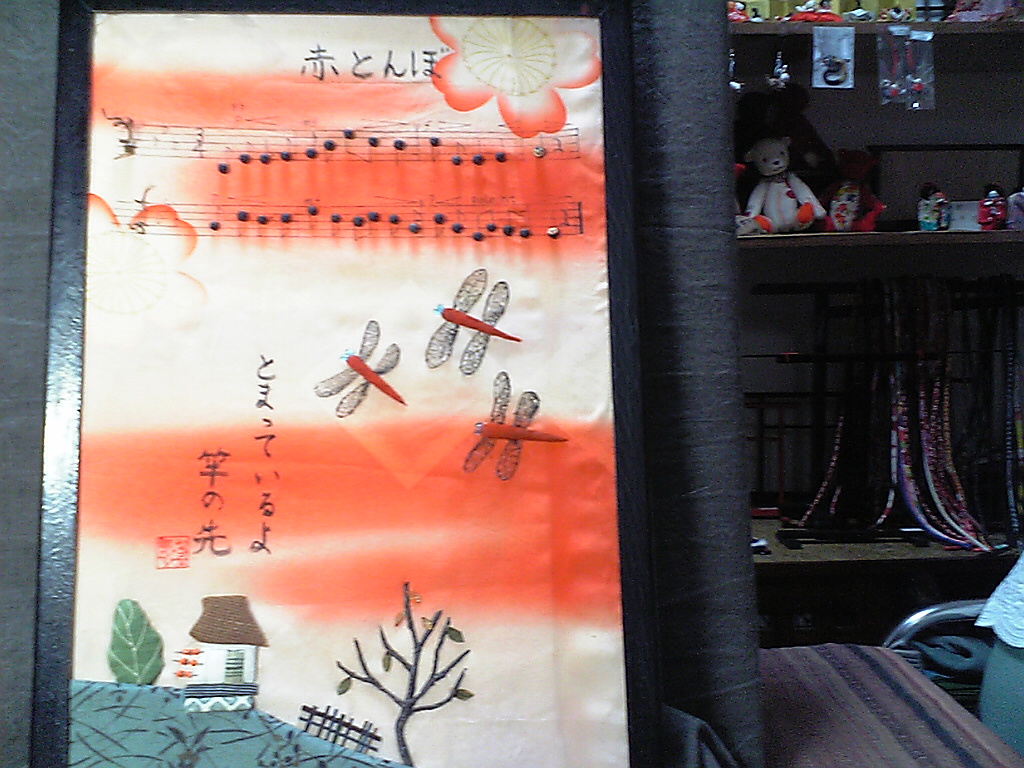 赤とんぼ
とまっているよ
竿の先